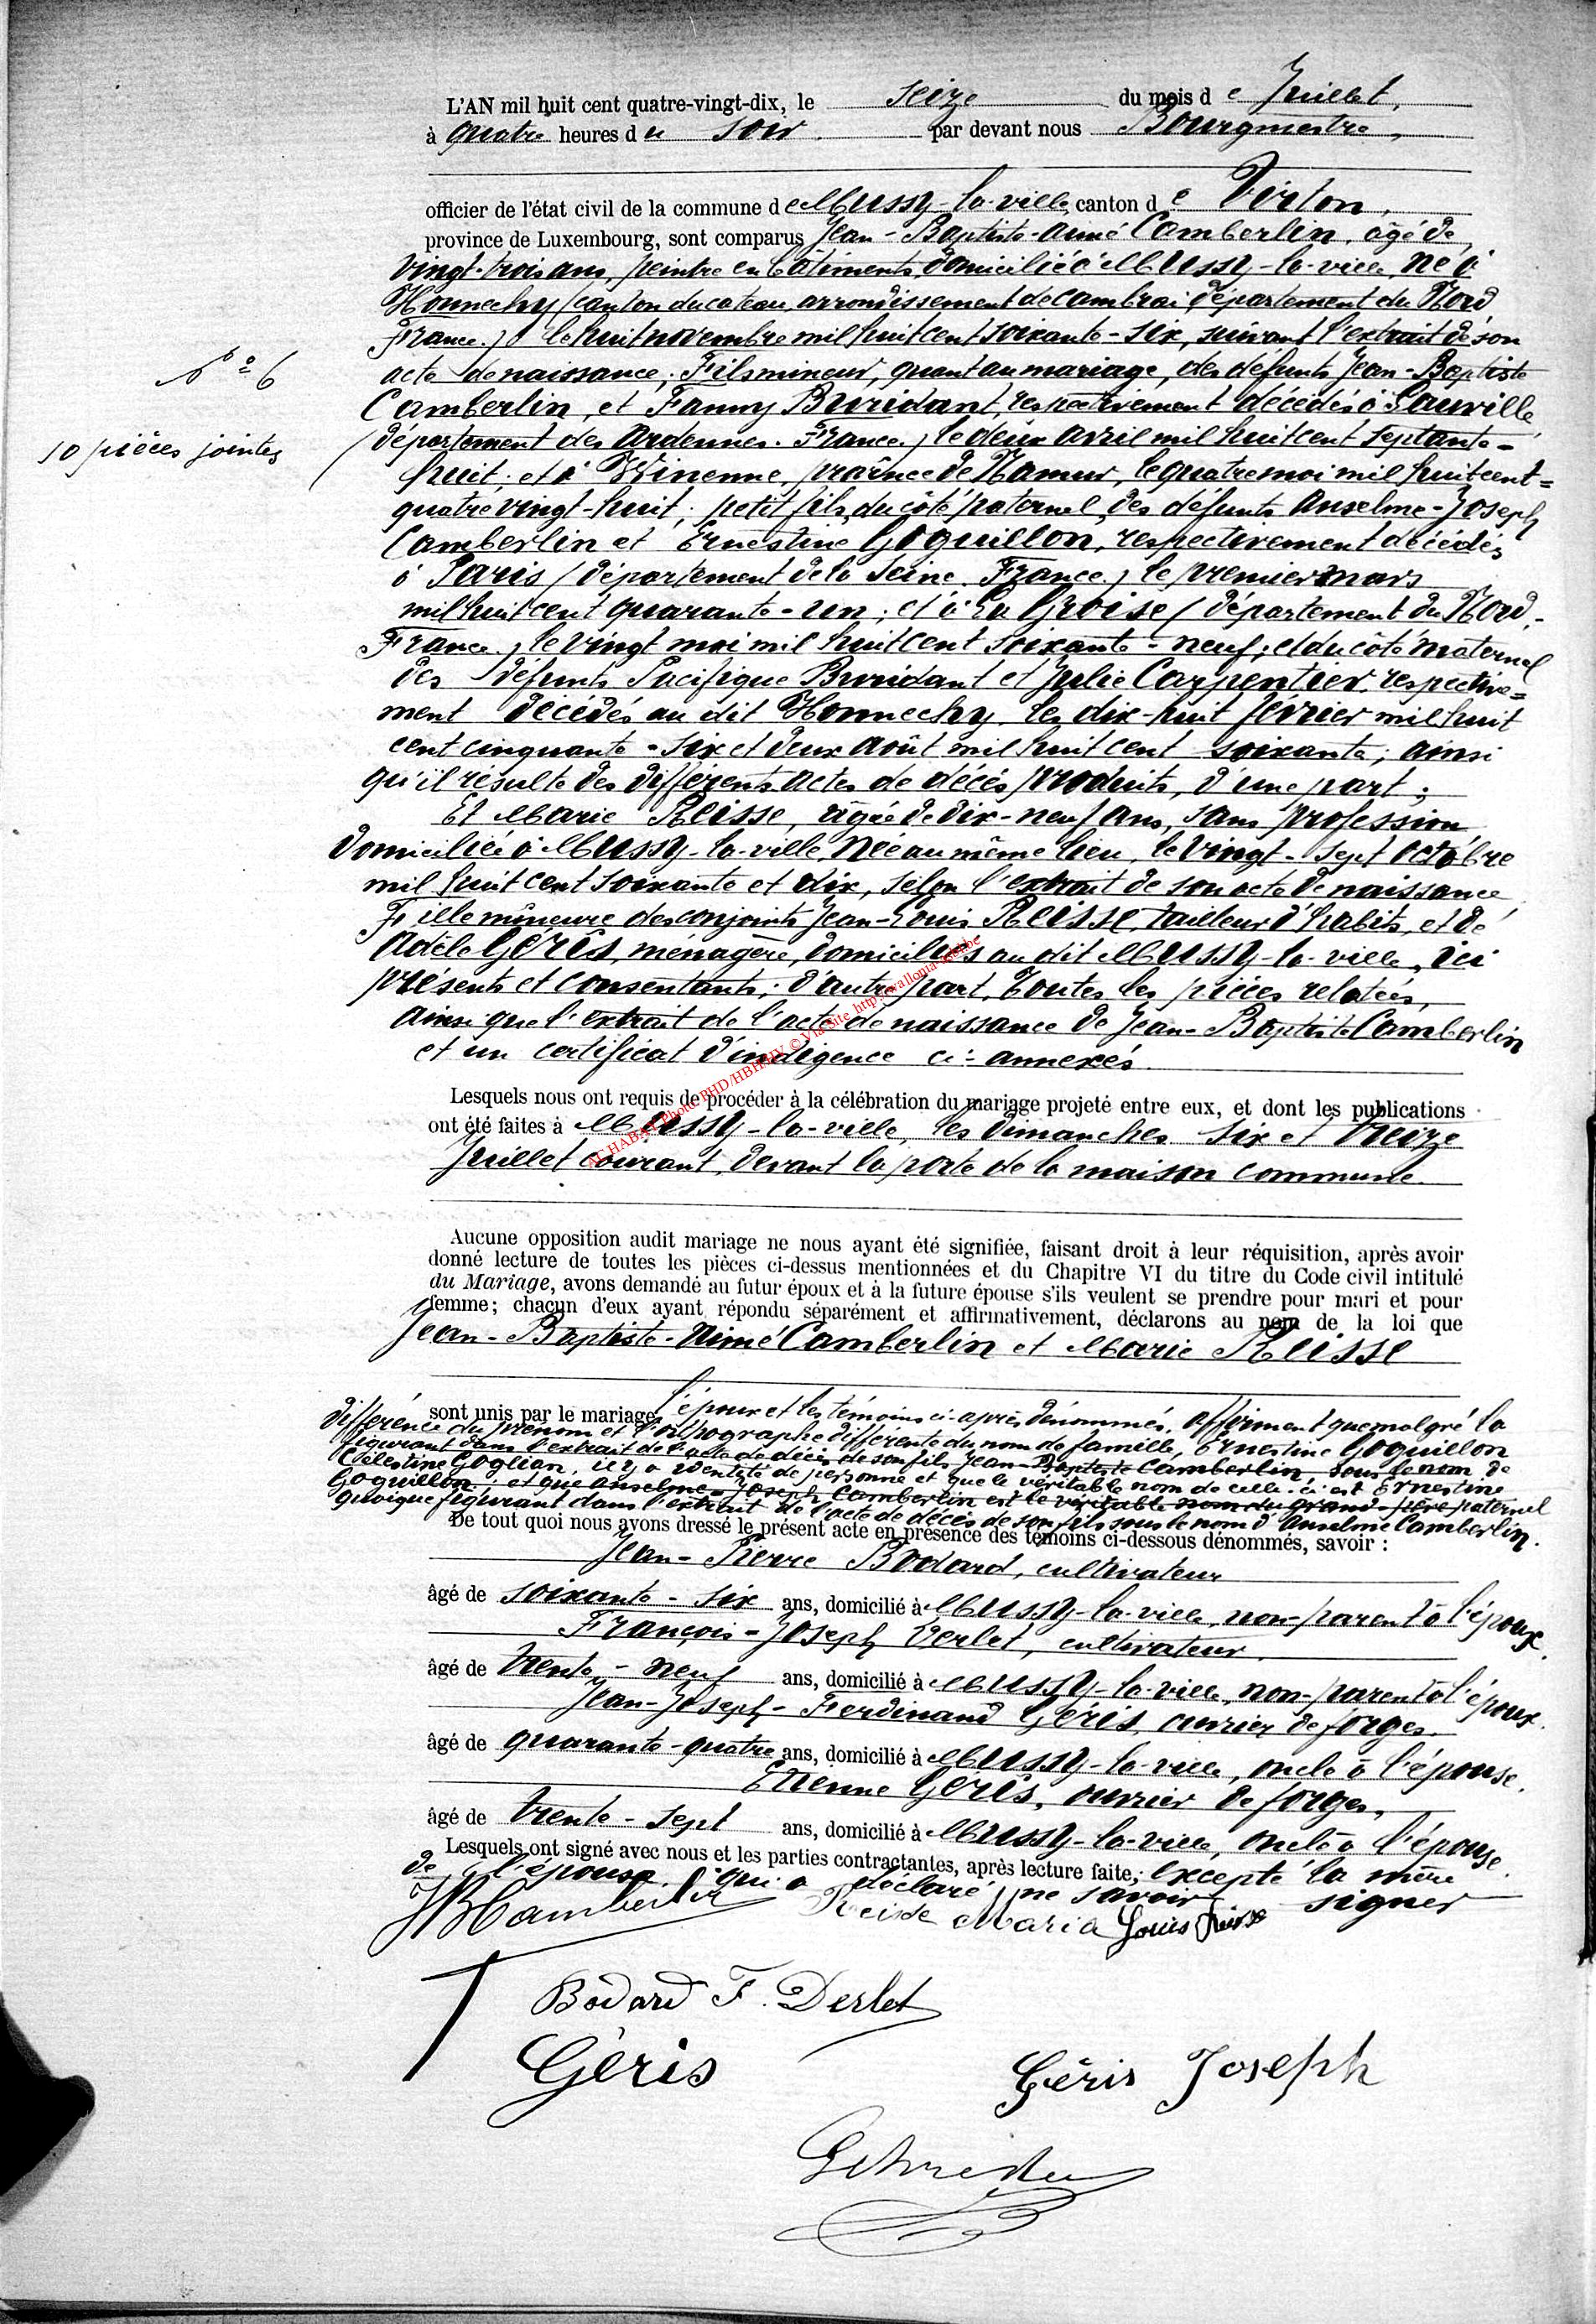 L'AN mil huit cent quatre-vingt-dix, le seize du mois de Juillet,
à quatre heures du soir par devant nous Bourgmestre,
officier de l'état civil de la commune de Mussy-la-ville, canton de Virton,
province de Luxembourg, sont comparus Jean-Baptiste-Aimé Camberlin, âgé de
vingt-trois ans, peintre en bâtiments, domicilié à Mussy-la-ville, né à
Honnechy (canton du cateau, arrondissement de Cambrai, département du Nord
France.) le huit novembre mil huit cent soixante-six, suivant l'extrait de son
N° 6
acte de naissance; Fils mineur, quant au mariage, des défunts Jean-Baptiste
Camberlin, et Fanny Buridant, respectivement décédés à Sauville
10 pièces jointes
(département des Ardennes. France.) le deux avril mil huit cent septante-
huit; et à Winenne, province de Namur, le quatre mai mil huit cent=
quatre vingt-huit; petit fils, du côté paternel, des défunts Anselme-Joseph
Camberlin et Ernestine Goquillon, respectivement décédés
à Paris (département de la Seine. France.) le premier mars
mil huit cent quarante-un; et à La Groise (département du Nord.-
France.) le vingt mai mil huit cent soixante-neuf; et du côté maternel
des défunts Pacifique Buridant et Julie Carpentier, respective=
ment décédés au dit Honnechy, les dix-huit février mil huit
cent cinquante-six et deux août mil huit cent soixante; ainsi
qu'il résulte des différents actes de décès produits, d'une part;
Et Marie Reisse, âgée de dix-neuf ans, sans profession,
domiciliée à Mussy-la-ville, née au même lieu, le vingt-sept octobre
mil huit cent soixante et dix, selon l'extrait de son acte de naissance,
Fille mineure des conjoints Jean-Louis Reisse, tailleur d'habits, et de
Adèle Géris, ménagère, domiciliés au dit Mussy-la-ville, ici
présents et consentants; d'autre part. Toutes les pièces relatées,
ainsi que l'extrait de l'acte de naissance de Jean-Baptiste Camberlin
et un certificat d'indigence ci-annexés.
Lesquels nous ont requis de procéder à la célébration du mariage projeté entre eux, et dont les publications
ont été faites à Mussy-la-ville, les dimanches six et treize
Juillet courant, devant la porte de la maison commune.
Aucune opposition audit mariage ne nous ayant été signifiée, faisant droit à leur réquisition, après avoir
donné lecture de toutes les pièces ci-dessus mentionnées et du Chapitre VI du titre du Code civil intitulé
du Mariage, avons demandé au futur époux et à la future épouse s'ils veulent se prendre pour mari et pour
femme; chacun d'eux ayant répondu séparément et affirmativement, déclarons au nom de la loi que
Jean-Baptiste-Aimé Camberlin et Marie Reisse
sont unis par le mariage, l'époux et les témoins ci-après dénommés, affirment que malgré la
différence du prénom et l'orthographe différente du nom de famille, Ernestine Goquillon
figurant dans l'extrait de l'acte de décès de son fils Jean-Baptiste Camberlin, sous le nom de
Célestine Goglian, il y a identité de personne et que le véritable nom de celle-ci est Ernestine
Goquillon; et que Anselme-Joseph Camberlin est le véritable nom du grand-père paternel
quoique figurant dans l'extrait de l'acte de décès de son fils sous le nom d'Anselme Camberlin.
De tout quoi nous avons dressé le présent acte en présence des témoins ci-dessous dénommés, savoir :
Jean-Pierre Bodard, cultivateur
âgé de soixante-six ans, domicilié à Mussy-la-ville, non-parent à l'époux.
François-Joseph Derlet, cultivateur.
âgé de trente-neuf ans, domicilié à Mussy-la-ville, non-parent à l'époux.
Jean-Joseph-Ferdinand Géris, ouvrier de forges.
âgé de quarante-quatre ans, domicilié à Mussy-la-ville, oncle à l'épouse.
Etienne Géris, ouvrier de forges,
âgé de trente-sept ans, domicilié à Mussy-la-ville, oncle à l'épouse.
Lesquels ont signé avec nous et les parties contractantes, après lecture faite, excepté la mère
de l'épouse, qui a déclaré ne savoir signer
JBCamberlin Reisse Maria Louis Reisse
Bodard F. Derlet
Géris Géris Joseph